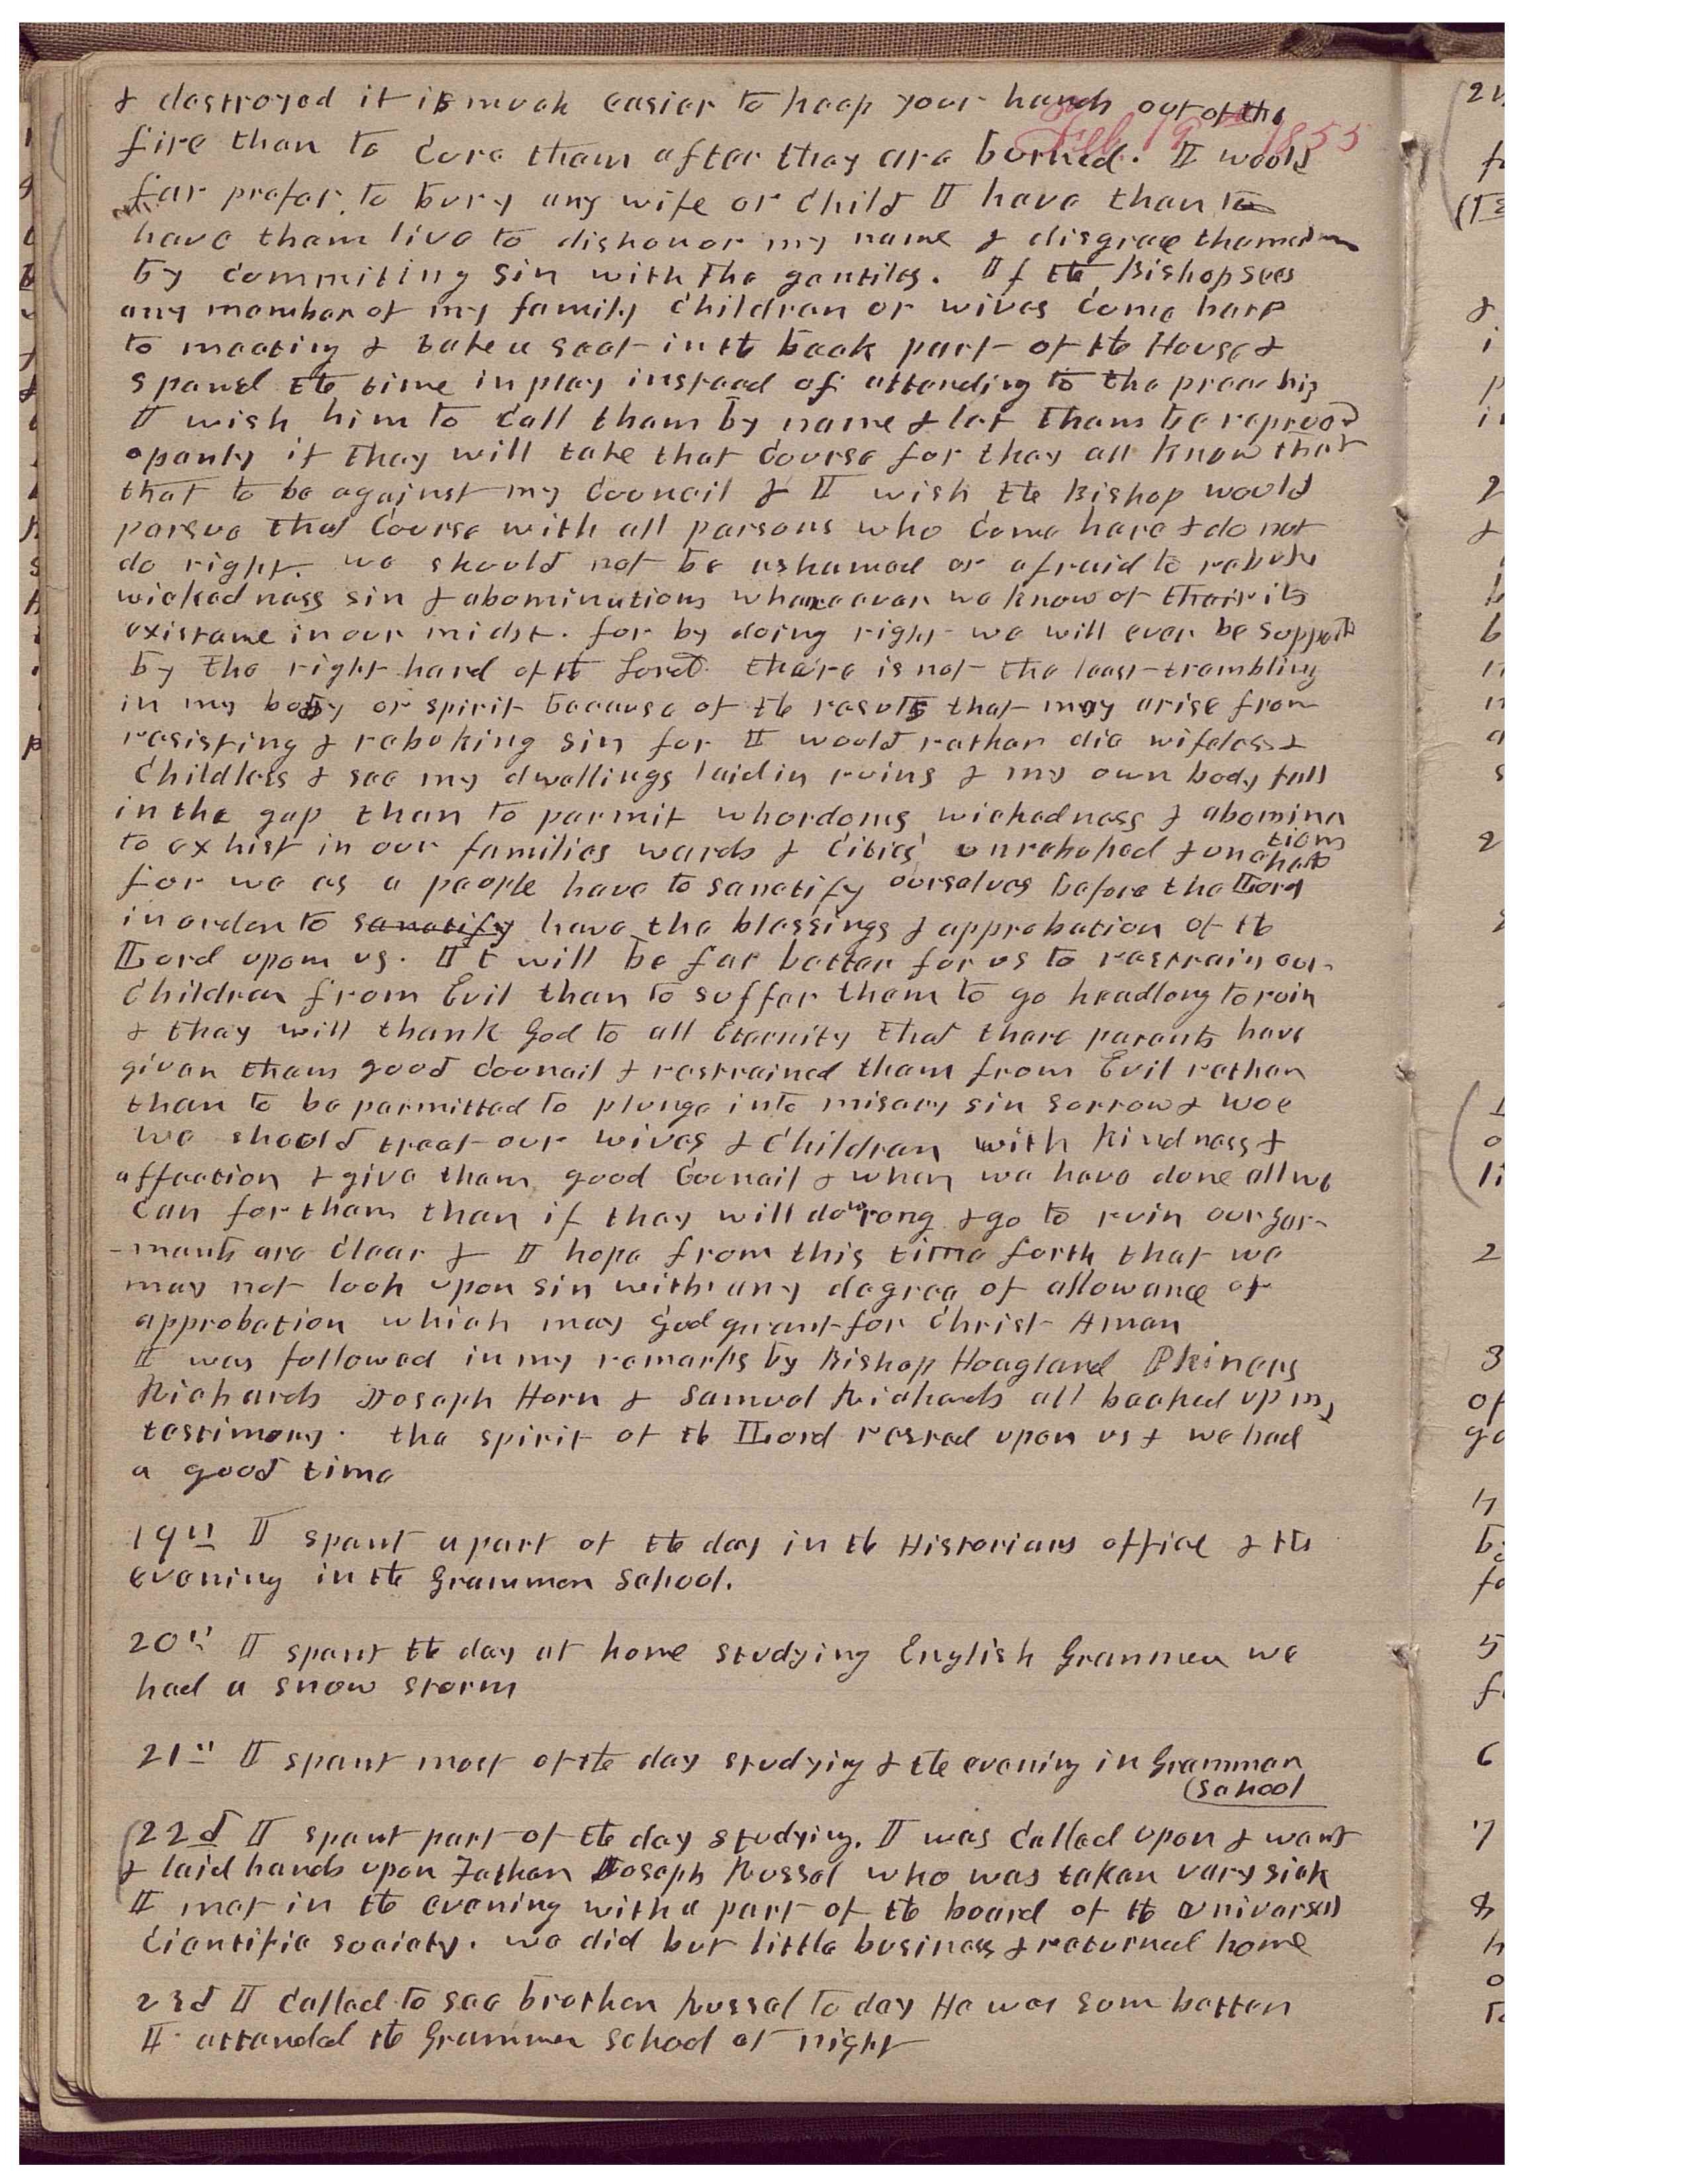 & destroyed it is much easier to keep your hands out of the
Feb 19th 1855
fire than to cure them after they are burned. I would
far prefer to bury any wife or child I have than to
have them live to dishonor my name & disgrace themselves
by commiting sin with the gentiles. If the Bishop sees
any member of my family children or wives come here
to meeting & take a seat in the back part of the House &
spend the time in play instead of attending to the preachig
I wish him to call them by name & let them be reproved
openly if they will take that course for they all know that
that to be against my council & I wish the Bishop would
persue that course with all persons who come here & do not
do right. we should not be ashamed or afraid to rebuke
wickedness sin & abominations whareever we know of their its
existance in our midst. for by doing right we will ever be supported
by the right hand of the Lord. theire is not the least trembling
in my body or spirit because of the results that may arise from
resisting & rebuking sin for I would rather die wifeless &
Childless & see my dwellings laid in ruins & my own body fall
in the gap than to permit whordoms wickedness & abomina
tions
to exhist in our families wards & Cities unrebuked &
for we as a people have to sanctify ourselves before the Lord
in order to sanctify have the blessings & approbation of the
Lord upon us. It will be far better for us to restrain our
Children from Evil than to suffer them to go headlong to ruin
& they will thank God to all Eternity that there parents have
given them good council & restrained them from Evil rather
than to be permitted to plunge into misery sin sorrow & woe
we should treat our wives & Children with kindness &
affection & give them good Council & when we have done all we
can for them than if they will do wrong & go to ruin our gar-
-ments are clear & I hope from this time forth that we
may not look upon sin with any degree of allowance or
approbation which may God grant for Christ Amen
I was followed in my remarks by Bishop Hoagland Phinehas
Richards Joseph Horn & Samuel Richards all backed up my
testimony. the spirit of the Lord rested upon us & we had
a good time
19th I spent a part of the day in the Historians office & the
evening in the Grammer School.
20th I spent the day at home studying English Grammer we
had a snow storm
21st I spent most of the day studying & the evening in Grammer
School
22d I spent part of the day studying. I was called upon & went
& laid hands upon Father Joseph Russel who was taken very sick
I met in the evening with a part of the board of the Universal
Cientific society. we did but little business & returned home
23d I called to see brother Russel to day He was som better
I attended the Grammer School at night